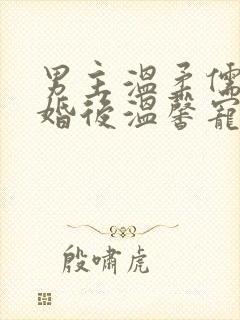 男主溫柔儒
婚後溫馨寵
殷嘯虎